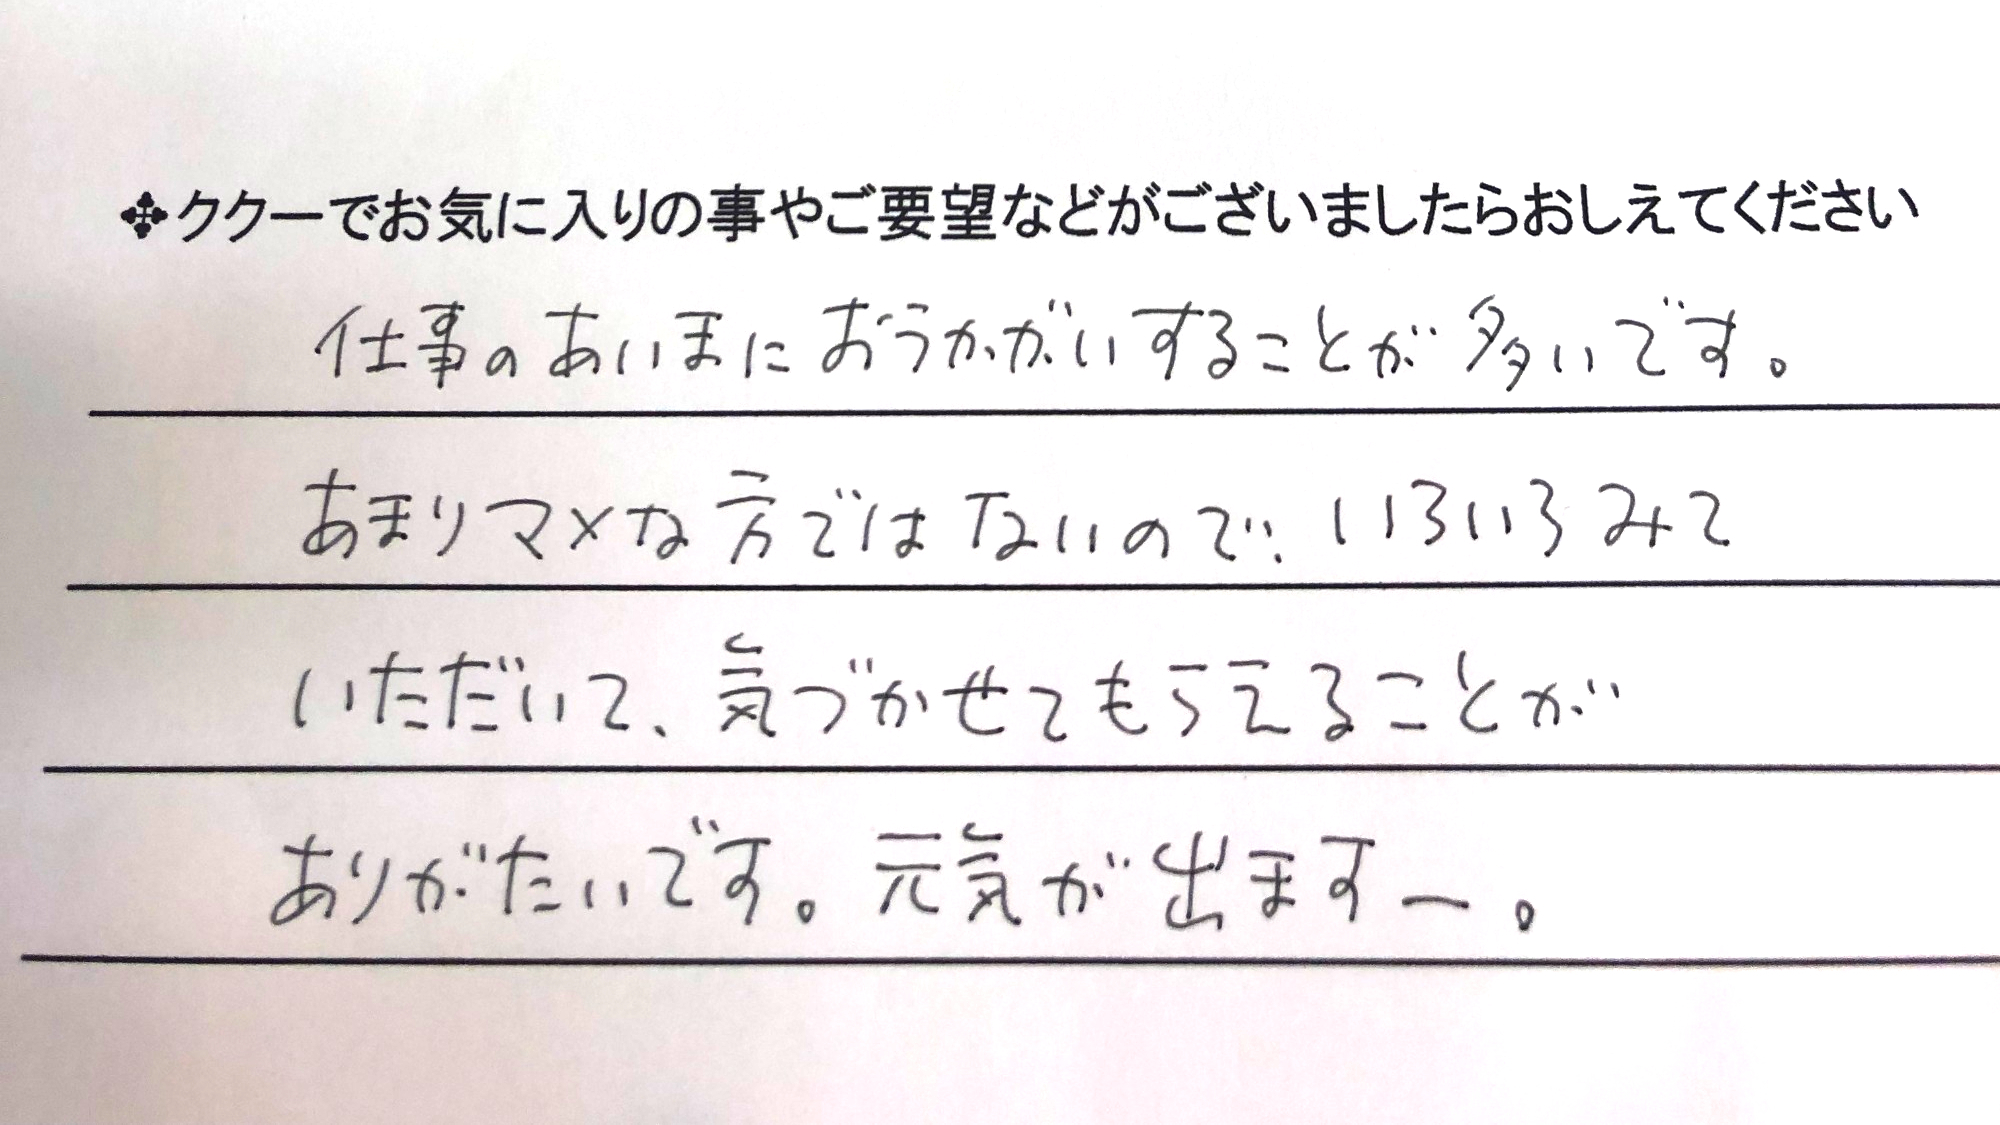 ❖ククーでお気に入りの事やご要望などがございましたらおしえてください
仕事のあいまにおうかがいすることが多いです。
あまりマメな方ではないので、いろいろみて
いただいて、気づかせてもらえることが
ありがたいです。元気が出ますー。